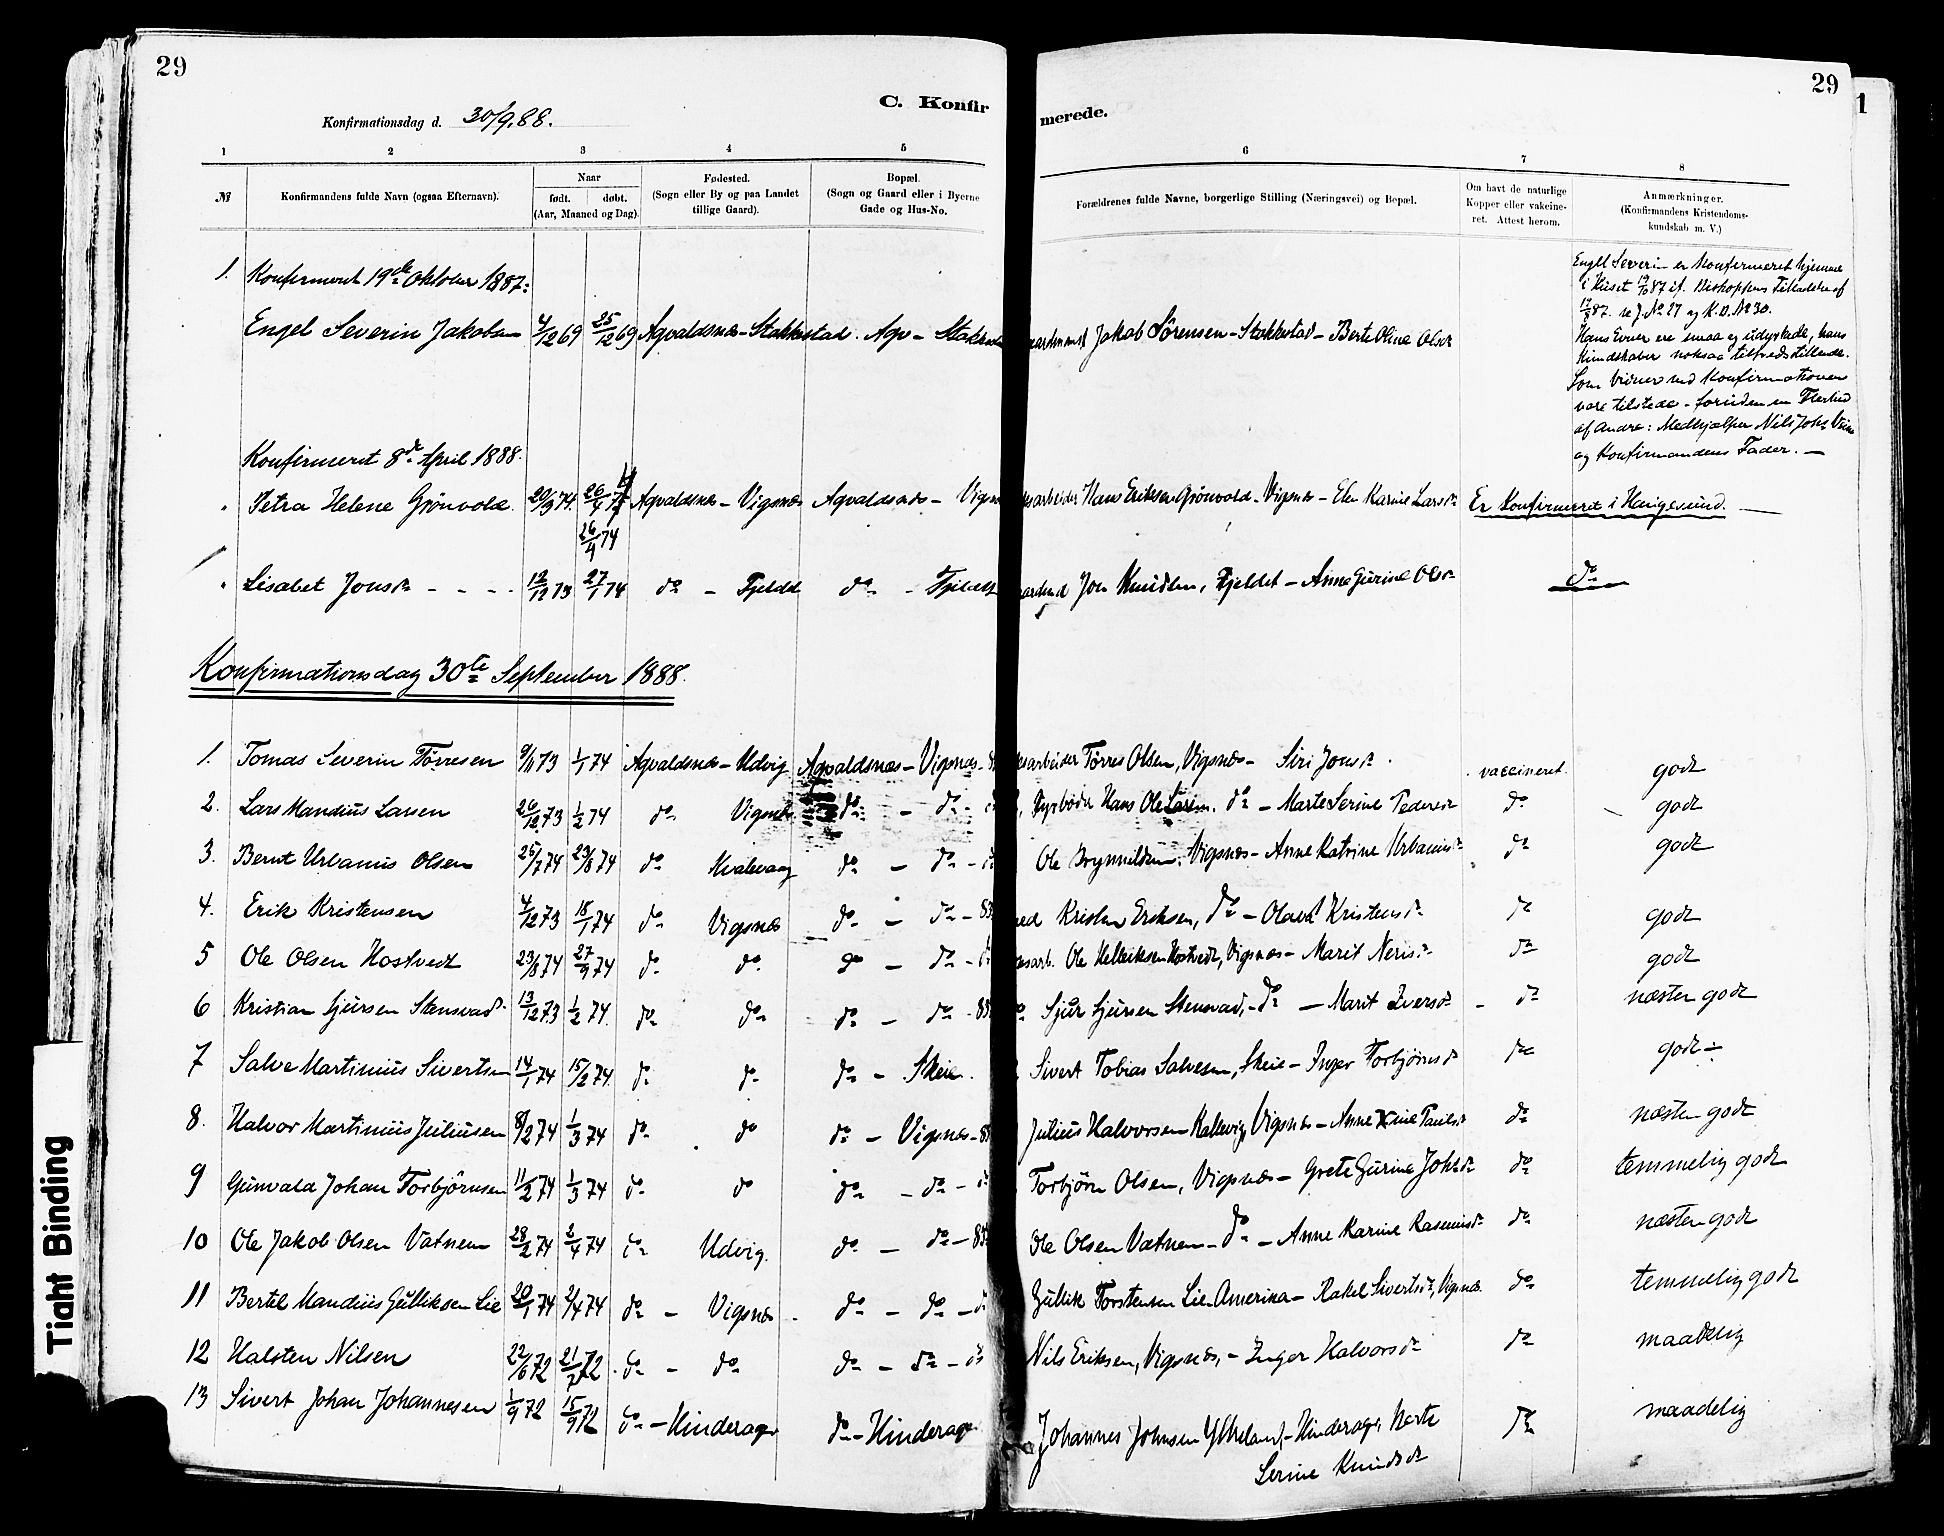 29
Konfirmationsdag d. 30/9.88.
C. Konfir
1 2 3 4 5
№ Konfirmandens fulde Navn (ogsaa Efternavn). Naar født. døbt. (Aar, Maaned og Dag). Fødested. (Sogn eller By og paa Landet tillige Gaard). Bopæl. (Sogn og Gaard eller i Byerne Gade og Hus-No.
29
1
merede.
6 7 8
Forældrenes fulde Navne, borgerlige Stilling (Næringsvei) og Bopæl. Om havt de naturlige Kopper eller vakcineret. Attest herom. Anmærkninger. (Konfirmandens Kristendomskundskab m. V.)
1. Konfirmeret 19de Oktober 1887:
Engel Severin Jakobsen 4/12 69 25/12 69 Agvaldsnæs - Stakkestad. Agv - Jakob Sörensen - Stakkestad - Berte Oline Olsdr
Engel Severin er konfirmeret hjemme
i Huset 19/10 87 if. Bishoppens Tilladelse af
87. se J. No 27 og K.D. No 30.
Hans Evner ere smaa og udyrkede, hans
Kundskaber noksaa tilfredsstillende.
Som Vidner ved Konfirmationen
vare tilstede - foruden en Flerhed
af Andre: Medhjælper Nils Johs
og Konfirmandens Fader. —
Konfirmeret 8de April 1888.
" Petra Helene Grönvold. 20/3 74. 26/4 74 Agvaldsnæs - Vigsnæs Agvaldsnæs - Vigsn arbeider Hans Eriksen Grönvold - Vigsnæs - Karine Larsdr Er konfirmeret i Haugesund. —
26/4 74
" Lisabet Jonsdr - - - 12/12 73 27/1 74 do - Fjeldet do - Fjeldet Jon Knudsen, Fjeldet - Anne Gurine Olsdr do
Konfirmationsdag 30te September 1888.
1. Tomas Severin Törresen 9/11 73 1/1 74 Agvaldsnæs - Udvig Agvaldsnæs - Vigsnæs - arbeider Törres Olsen, Vigsnæs - Siri Jonsdr. vaccineret. godt
2. Lars Mandius Larsen 26/12 73 1/2 74 do Vigsnæs do - do - Fyrböder Hans Ole Larsen. do - Marte Serine Pedersdr do godt
3. Bernt Urbanus Olsen 25/7 74 23/8 74 do Kvalevaag do - do - Ole Brynnildsen, Vigsnæs - Anne Katrine Urbanusdr do godt
4. Erik Kristensen 4/12 73 18/1 74 do Vigsnæs do - do - Kristen Eriksen, do - Olava Kristensdr do godt
5 Ole Olsen Hostvedt 23/8 74 27/9 74 do do. do - do - sarb. Ole Helleiksen Hostvedt, Vigsnæs - Marit Nerisdr do godt
6 Kristian Sjursen Stensvad 13/12 73 1/2 74. do do do - do - Sjur Sjursen Stensvad, - do - Marit Iversdr - do næsten godt
7 Salve Martinius Sivertsen 14/1 74 15/2 74 do do do - Skeie. Sivert Tobias Salvesen, Skeie - Inger Torbjörnsdr do godt ÷
8. Halvor Martinius Juliusen 8/2 74 1/3 74 do do do - Vigsnæs - Julius Halvorsen Kallevig, Vigsnæs - Anne Paulsdr do næsten godt
9 Gunvald Johan Torbjörnsen 11/2 74 1/3 74 do do do - do - Torbjörn Olsen, Vigsnæs - Grete Gurine Johsdr do temmelig godt
10 Ole Jakob Olsen Vatnem 28/2 74 2/4 74 do Udvig. do - do - Ole Olsen Vatnem - do - Anne Karine Rasmusdr do næsten godt
11 Bertel Mandius Gulliksen Lie 20/1 74 2/4 74 do - Vigsnæs do - do - Gullik Torstensen Lie - Amerika - Rakel Sivertsdr, Vigsnæs. do temmelig godt
12 Halsten Nilsen 22/6 72 21/7 72 do - do do - do - Nils Eriksen, Vigsnæs, - Inger Halvorsdr do maadelig
13 Sivert Johan Johannesen 1/9 72 15/9 72 do - Hinderager do - Hinderager Johannes Johnsen - Hinderager, do maadelig
Serine Knudsdr
Tight Binding